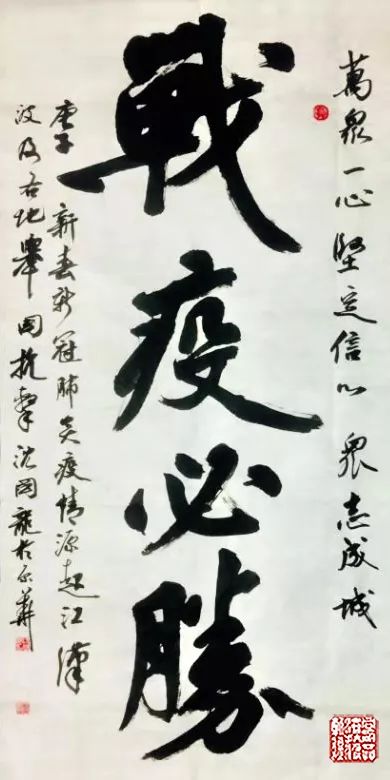 萬眾一心堅定信心 眾志成城
戰疫必勝
庚子新春新冠肺炎疫情源起江漢
波及各地舉国抗擊沈國龍於